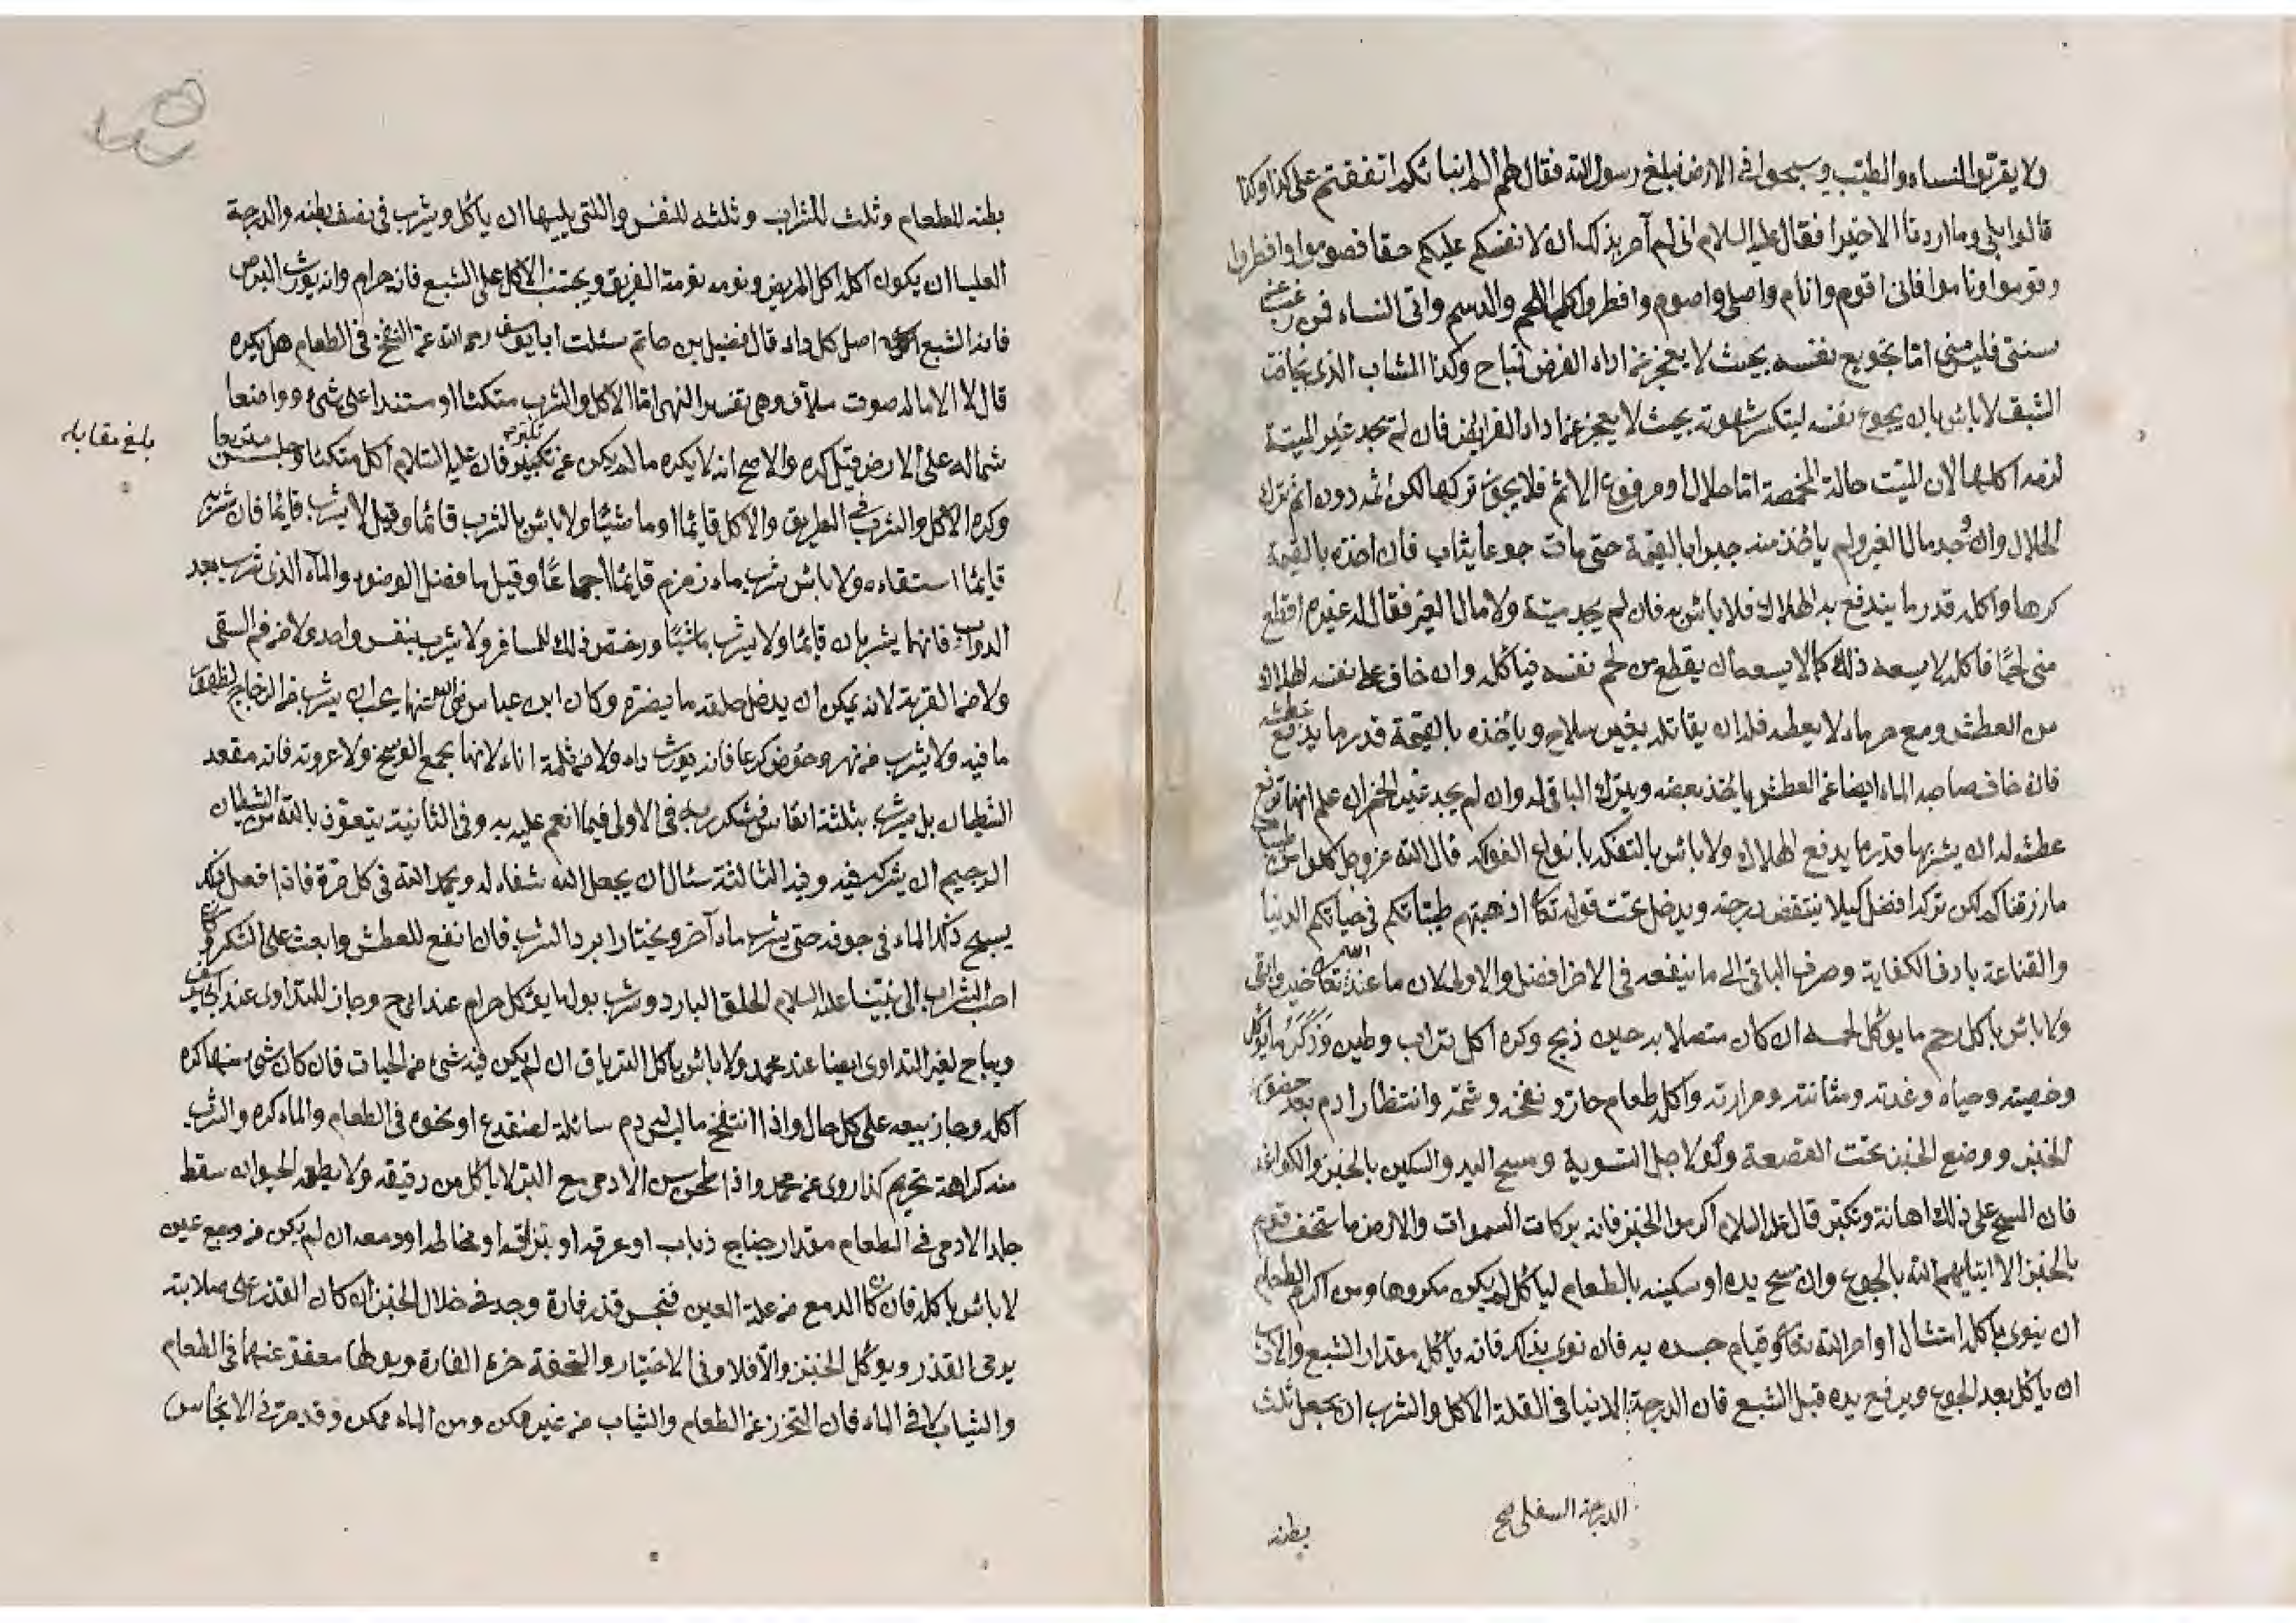 ولا يقربوا النساء والطيب ويسيحوا في الارض فبلغ رسول الله فقال لهم الم انبا نكم اتفقتم على كذا وكذا
قالوا بلى وما اردنا الا خيرا فقال عليه السلام انى لم آمر بذلك ان لانفسكم عليكم حقا فصوموا وافطروا
وقوموا وناموا فانى اقوم وانام واصلى واصوم وافطر واكل اللحم والدسم واتى النساء فمن رغب عن
سنتى فليس منى اما تجويع نفسه بحيث لا يعجز عن اداء الفرض فمباح وكذا الشاب الذى يخاف
الشبق لا باس بان يجوع نفسه ليتكسر شهوته بحيث لا يعجز عن اداء الفرايض فان لم يجد غير الميتة
لزمه اكلها لان الميت حالة المخمصة اما حلال او مرفوع الاثم فلا يجوز تركها لكن اثمه دون اثم ترك
الحلال وان وجد مال الغير ولم ياخذ منه جبرا بالقيمة حتى مات جوعا يثاب فان اخذه بالقيمة
كرها واكله قدر ما يندفع به الهلاك فلا باس به فان لم يجد ميتة ولا مال الغير فقال له غيره اقطع
منى لحمًا فاكل لا يسعه ذلك كما لا يسعه ان يقطع من لحم نفسه فياكل وان خاف على نفسه الهلاك
من العطش ومع حر ماء لا يعطه فله ان يقاتله بغير سلاح وياخذه بالقيمة قدر ما يدفع عطشه
فان خاف صاحب الماء ايضا عن العطش ياخذ بعضه ويترك الباقى له وان لم يجد غير الخمر ان علم انها ترفع
عطشه له ان يشربها قدر ما يدفع الهلاك ولا باس بالتفكه بانواع الفواكه قال الله عز وجل كلوا من طيبات
ما رزقناكم لكن تركه افضل كيلا ينتقض درجته ويدخل تحت قوله تعالى اذهبتم طيباتكم في حياتكم الدنيا
والقناعة بادنى الكفاية وصرف الباقى الى ما ينفعه في الاخرا افضل والاولى لان ما عند الله تعالى خير وابقى
ولا باس باكل رحم ما يوكل لحمه ان كان متصلا به حين ذبح وكره اكل تراب وطين وذكر ما يوكل
وخصيته وحياه وغدته ومثانته ومرارته واكل طعام حار ونفخه وشمه وانتظار ادم بعد حضور
الخبز ووضع الخبز تحت القصعة ولو لاجل التسوية ومسح اليد والسكين بالخبز والكواغد
فان المسح على ذلك اهانة وتكبر قال عليه السلام اكرموا الخبز فانه بركات السموات والارض ما ستخف قوم
بالخبز الا ابتلاهم الله بالجوع وان مسح يده او سكينه بالطعام لياكل لم يكن مكروها ومن اكرام الطعام
ان ينوى باكله امتثال اوامر الله تعالى وقيام جسده به فان نوى بذلك فانه ياكل مقدار الشبع والادب
ان ياكل بعد الجوع ويرفع يده قبل الشبع فان الدرجة الدنيا في القلة الاكل والشرب ان يجعل ثلث
الدرجة السفلى صح
بطنه
بطنه للطعام وثلث للشراب وثلثه للنفس والتى يليها ان ياكل ويشرب في نصف بطنه والدرجة
العليا ان يكون اكله اكل المريض ونومه نومة الغريق ويجتنب الاكل على الشبع فانه حرام وانه يورث البرص
فانه الشبع اصل كل داء قال فضيل بن حاتم سئلت ابا يوسف رحمه الله عن النفخ في الطعام هل يكره
قال لا الا ما له صوت مثل اف وهى تفسير النهى اما الاكل والشرب متكئا او مستندا على شئ وواضعا
شماله على الارض قيل كره والاصح انه لا يكره ما لم يكن عن تكبر فان عليه السلام اكل متكئا وجلس متربعا
بلغ مقابله
وكره الاكل والشرب في الطريق والاكل قايما او ماشيًا ولا باس بالشرب قائما وقيل لا يشرب قايما فان شرب
قايما استقاء ولا باس بشرب ماء زمزم قايمًا اجماعًا وقيل ما فضل الوضوء والماء الذى شرب بعد
الدواب فانهما يشربان قايما ولا يشرب ماشيًا ورخص ذلك للمسافر ولا يشرب بنفس واحد ولا من فم السقى
ولا من القربة لانه يمكن ان يدخل حلقه ما يضره وكان ابن عباس رضى الله عنهما يحب ان يشرب من الزجاج لظهور
ما فيه ولا يشرب من نهر وحوض كرعا فانه يورث داء ولا من ثلمة اناء لانها مجمع الوسخ ولا عروته فانه مقعد
الشيطان بل يشرب بثلثة انفاس فيشكر ربه في الاولى فيما انعم عليه به وفى الثانية يتعوذ بالله من الشيطان
الرجيم ان يشركه فيه وفى الثالثة سئال ان يجعل الله شفاء له ويحمد الله في كل مرة فاذا فعل ذلك
يسبح ذلك الماء في جوفه حتى يشرب ماء آخر ويختار ابرد الشرب فان انفع للعطش وابعث على الشكر وكان
احب الشراب الى نبينا عليه السلام الحلو البارد وشرب بول ما يوكل حرام عند ابى ح وجاز للتداوى عند ابى يوسف
ويباح لغير التداوى ايضا عند محمد ولا باس باكل الترياق ان لم يكن فيه شئ من الحيات فان كان شئ منها كره
اكله وجاز بيعه على كل حال واذا انتفخ ما ليس دم سائلة لضفدع او نحوه في الطعام والماء كره والشرب
منه كراهة تحريم كذا روى عن محمد واذا طحن سن الادمى مع البر لا ياكل من دقيقه ولا يطعم الحيوان سقط
جلد الادمى في الطعام مقدار جناح ذباب او عرقه او بزاقه او مخاطه او دمعه ان لم يكن من وجع عين
لا باس باكله فان كان الدمع من علة العين فنجس قذر فارة وجد في خلال الخبز ان كان القذر على صلابته
يرمى القذر ويوكل الخبز والافلا وفى الاختيار والتحفة خرء الفارة وبولها معفو عنهما في الطعام
والثياب لا في الماء فان التحرز عن الطعام والثياب من غير ممكن ومن الماء ممكن وقد مر في الانجاس